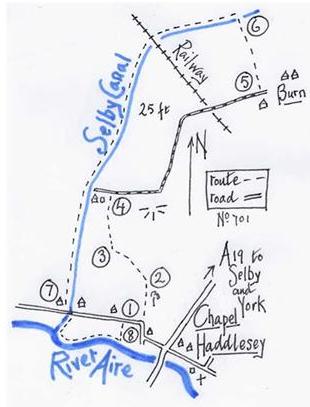 6
Railway
5
Burn
Selby Canal
25 ft
N
4
route
road
No 701
3
A19 to
Selby
and
York
2
7
1
Chapel
Haddlesey
8
River Aire